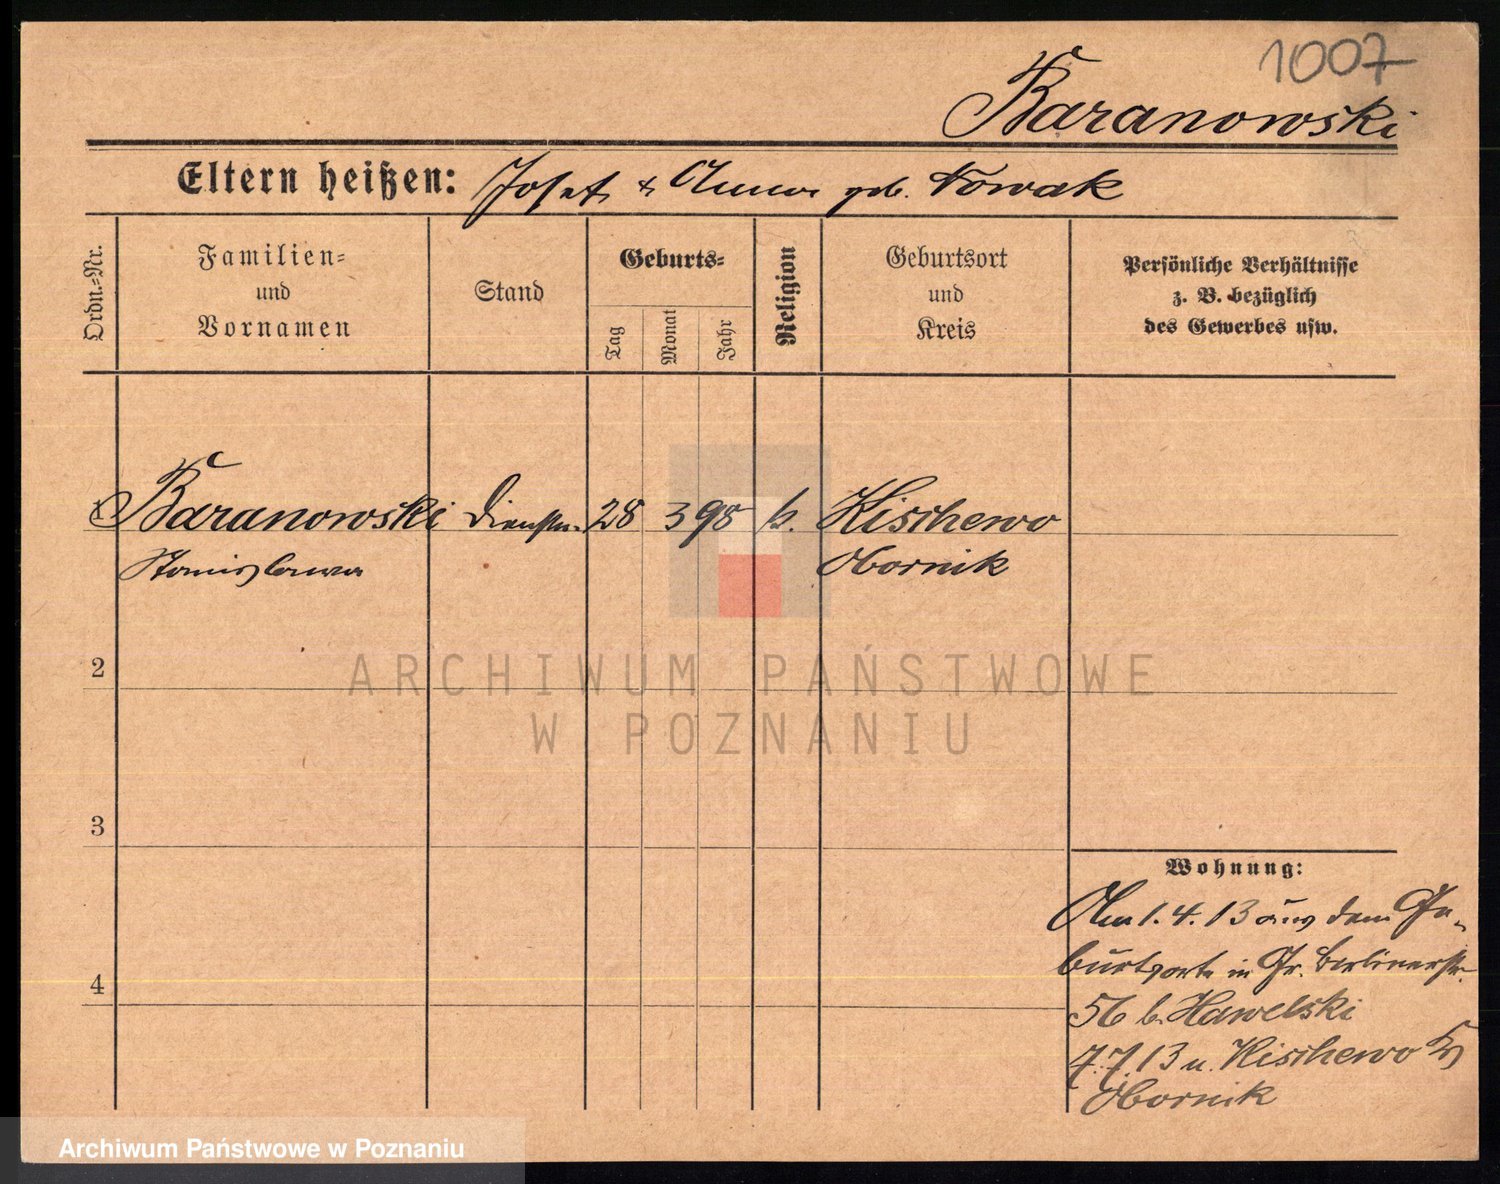 1007
Baranowski
Eltern heißen: Josef & Anna geb. Nowak
Ordn.-Nr.
Familien-
und
Vornamen
Stand
Geburts-
Tag
Monat
Jahr
Religion
Geburtsort
und
Kreis
Persönliche Verhältnisse
z. B. bezüglich
des Gewerbes usw.
1 Baranowski Dienstm. 28 3 98 k. Kischewo
Stanislawa Obornik
2
3
4
ARCHIWUM PAŃSTWOWE
W POZNANIU
Wohnung:
Am 1.4.13 aus dem Ge-
burtsorte in Gr. Berlinerstr.
56 b. Hawelski
7.7.13 n. Kischewo Kr
Obornik
Archiwum Państwowe w Poznaniu